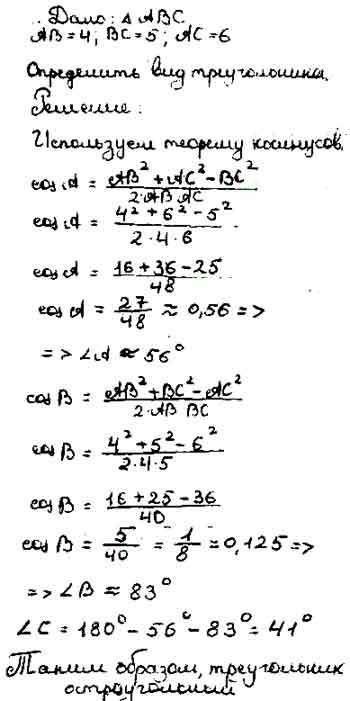 Дано: Δ ABC
AB=4; BC=5; AC=6
Определить вид треугольника.
Решение:
Используем теорему косинусов.
cos A = (AB² + AC² - BC²) / (2·AB·AC)
cos A = (4² + 6² - 5²) / (2·4·6)
cos A = (16 + 36 - 25) / 48
cos A = 27/48 ≈ 0,56 =>
=> ∠A ≈ 56°
cos B = (AB² + BC² - AC²) / (2·AB·BC)
cos B = (4² + 5² - 6²) / (2·4·5)
cos B = (16 + 25 - 36) / 40
cos B = 5/40 = 1/8 = 0,125 =>
=> ∠B ≈ 83°
∠C = 180° - 56° - 83° = 41°
Таким образом, треугольник
остроугольный